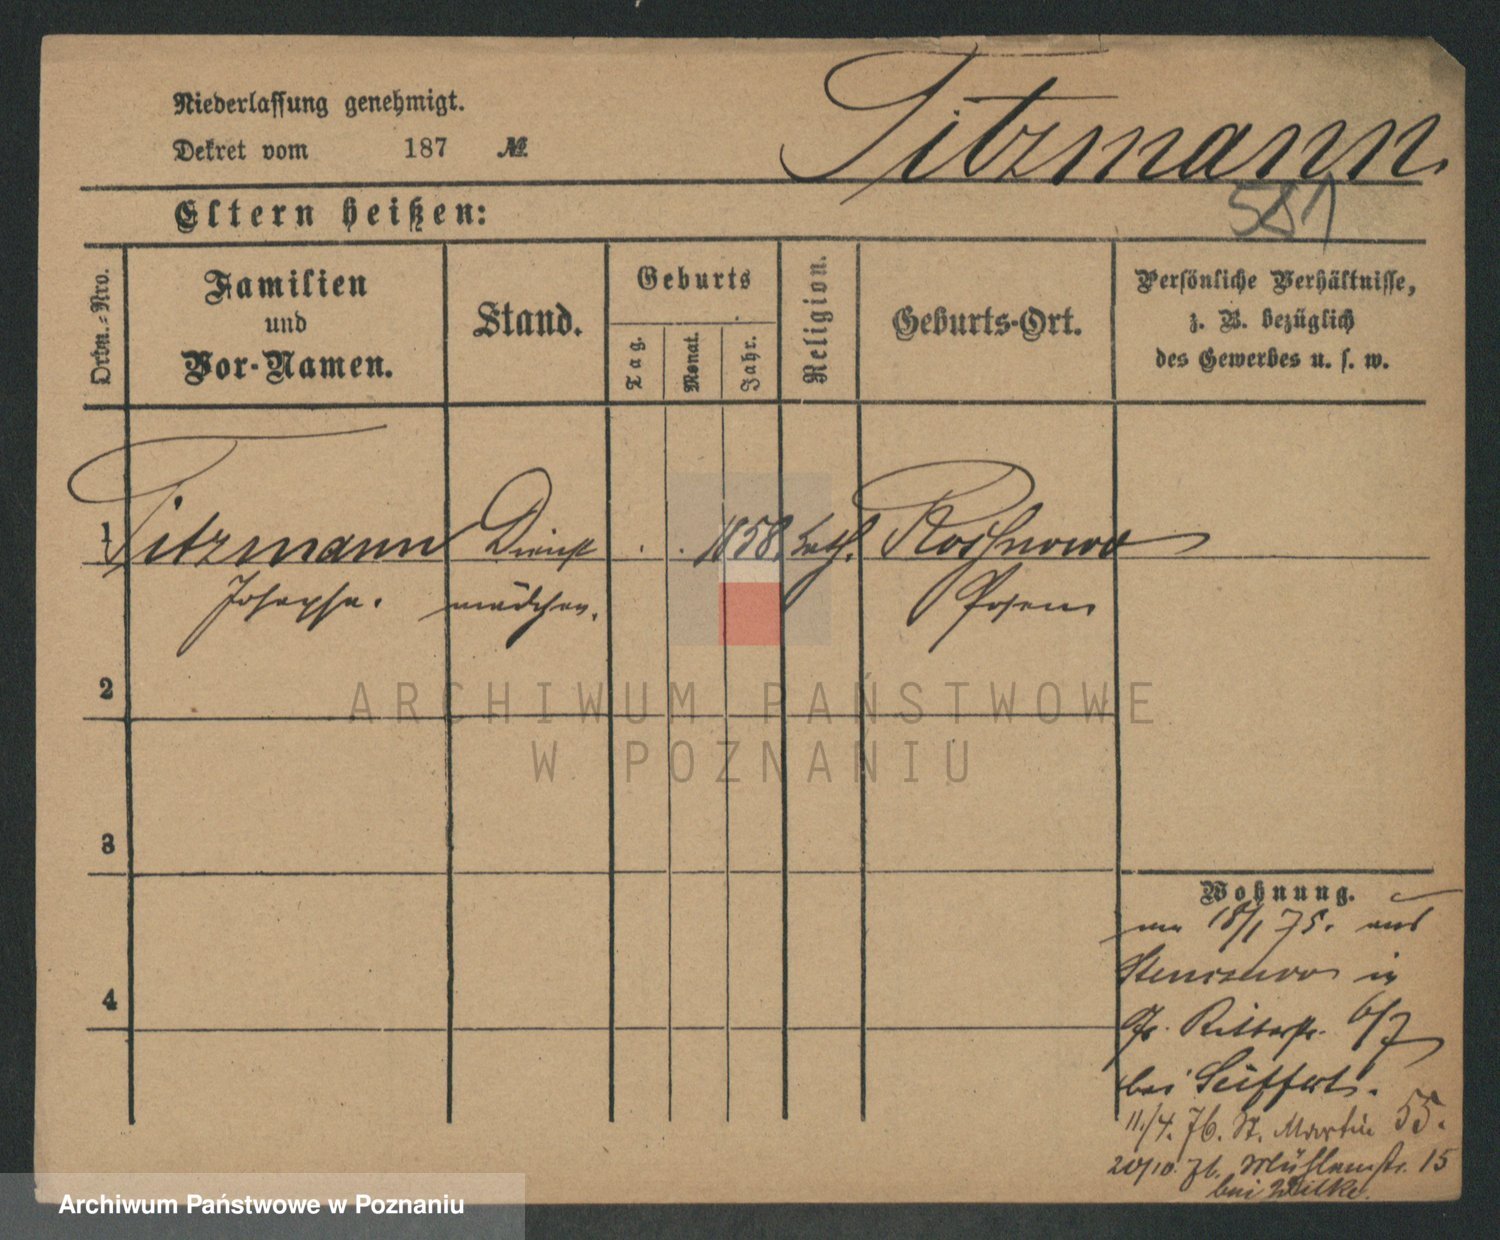 Niederlassung genehmigt.
Dekret vom 187 №
Titzmann.
581
Eltern heißen:
Ordn.-Nro.
Familien
und
Vor-Namen.
Stand.
Geburts
Tag.
Monat.
Jahr.
Religion.
Geburts-Ort.
Persönliche Verhältnisse,
z. B. bezüglich
des Gewerbes u. s. w.
1 Titzmann Dienst . . 1858. kath. Roschnowo
Josepha. mädchen. Posen
2
3
4
Wohnung.
18/1 75. aus
in
Gr. Ritterstr. 6/7
bei Seiffert.
11./4. 76. St. Martin 55.
20/10. 76. Mühlenstr. 15
bei Wilke.
ARCHIWUM PAŃSTWOWE
W POZNANIU
Archiwum Państwowe w Poznaniu